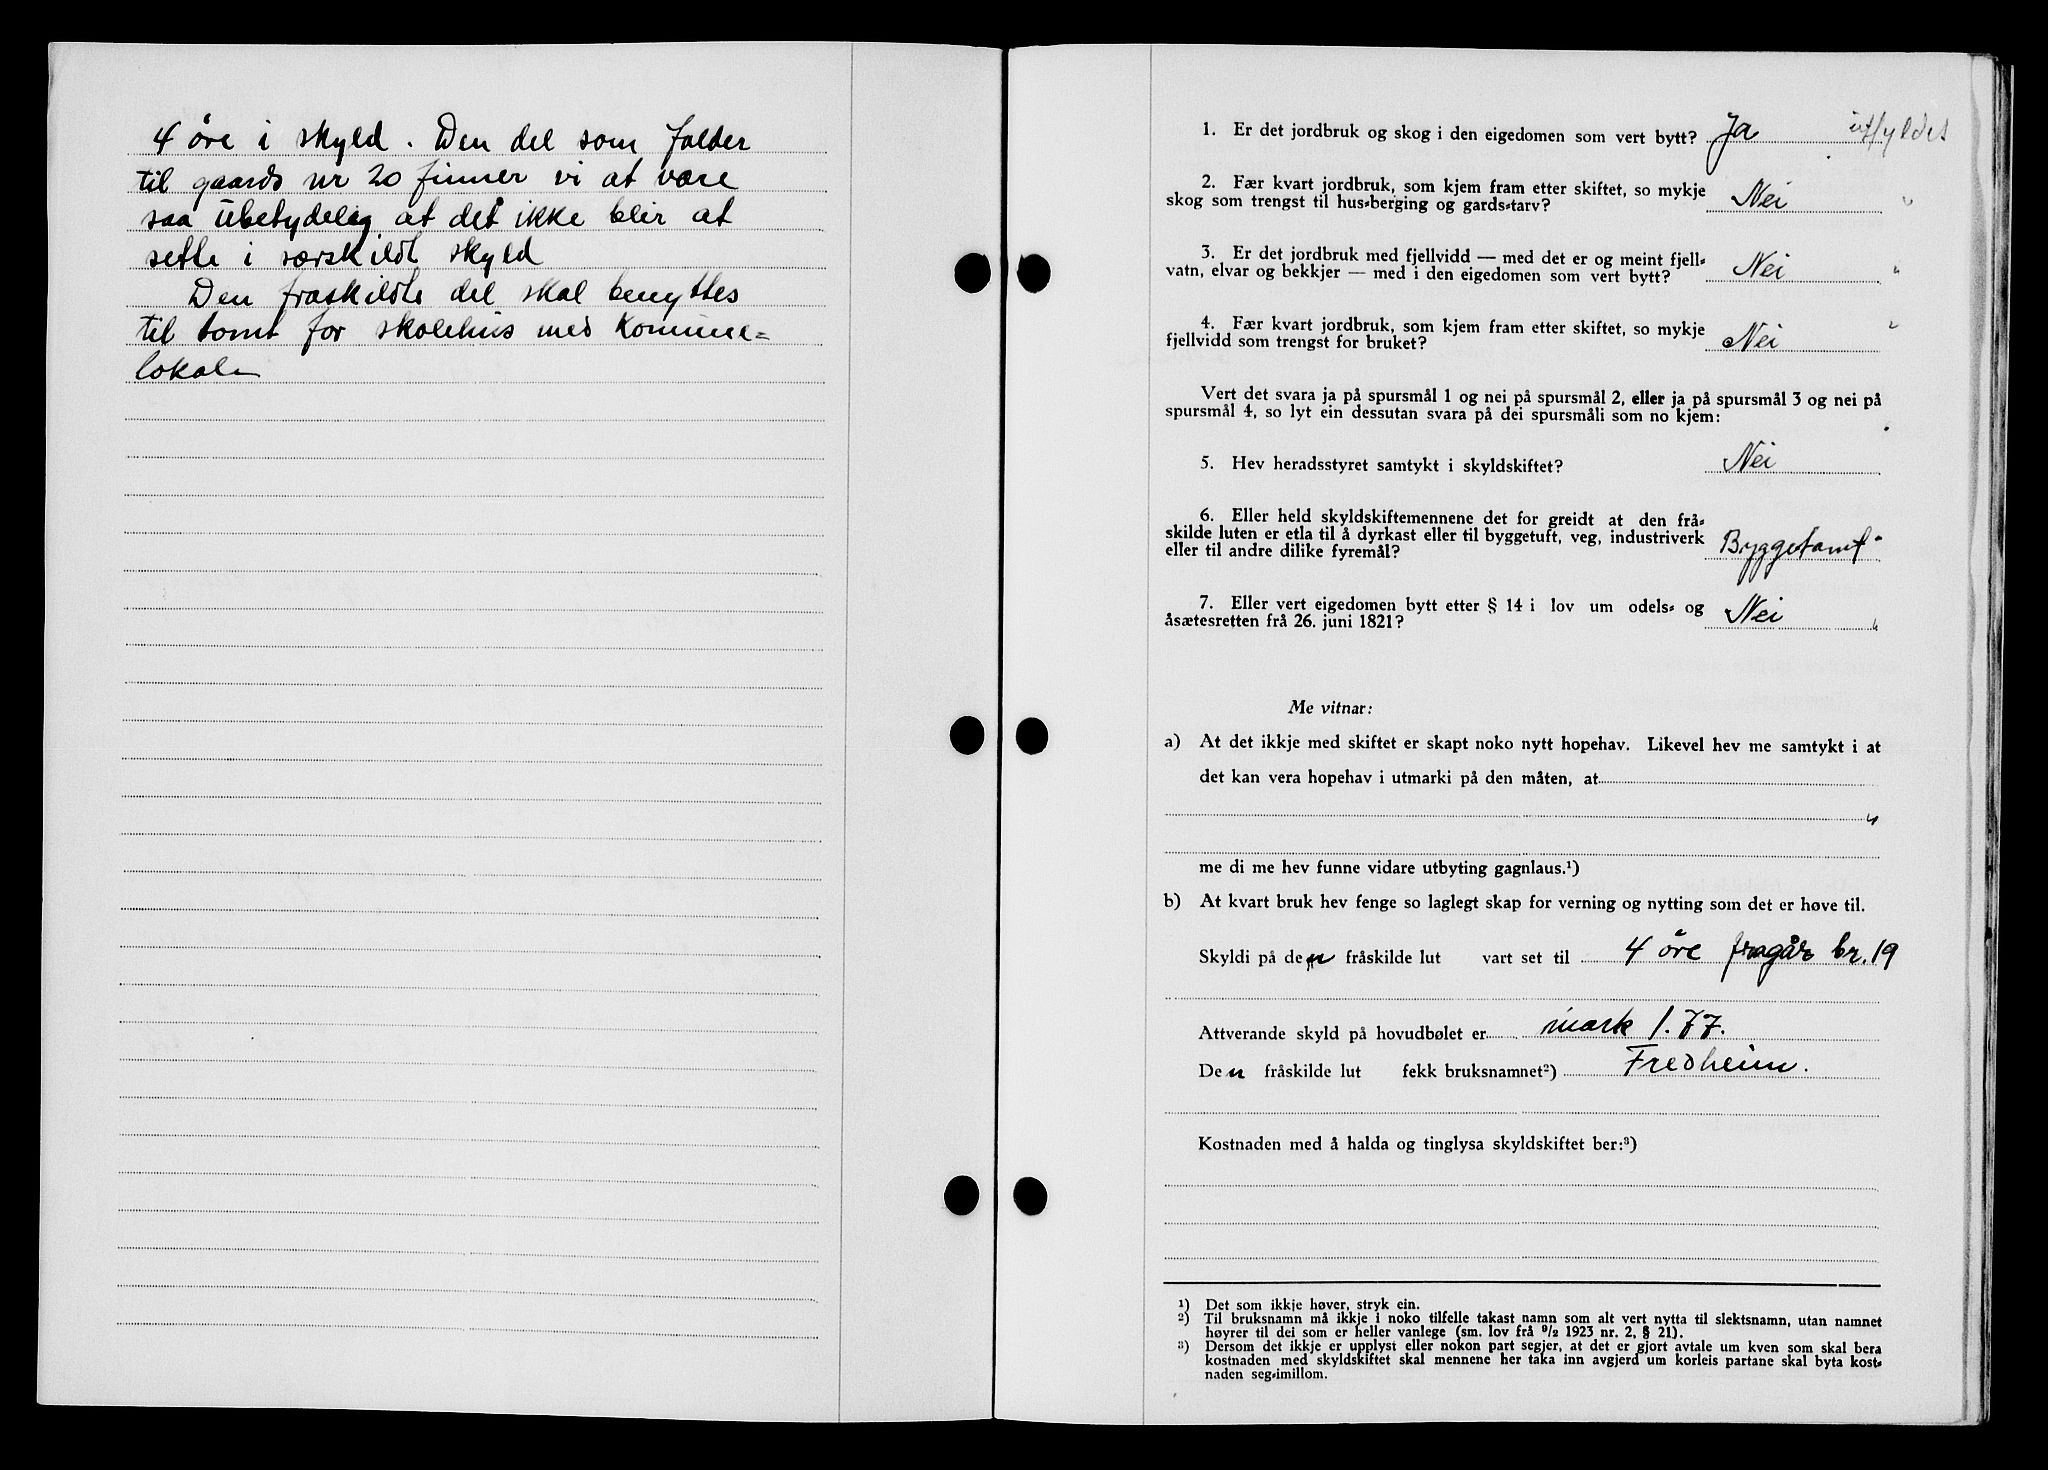 4 öre i skyld. Den del som falder
til gaards nr 20 finner vi at være
saa ubetydelig at det ikke blir at
sette i særskildt skyld
Den fraskildte del skal benyttes
til tomt for skolehus med Komune=
lokale
1. Er det jordbruk og skog i den eigedomen som vert bytt? Ja utfyldet
2. Fær kvart jordbruk, som kjem fram etter skiftet, so mykje
skog som trengst til hus-berging og gards-tarv? Nei "
3. Er det jordbruk med fjellvidd — med det er og meint fjell-
vatn, elvar og bekkjer — med i den eigedomen som vert bytt? Nei "
4. Fær kvart jordbruk, som kjem fram etter skiftet, so mykje
fjellvidd som trengst for bruket? Nei "
Vert det svara ja på spursmål 1 og nei på spursmål 2, eller ja på spursmål 3 og nei på
spursmål 4, so lyt ein dessutan svara på dei spursmåli som no kjem:
5. Hev heradsstyret samtykt i skyldskiftet? Nei
6. Eller held skyldskiftemennene det for greidt at den frå-
skilde luten er etla til å dyrkast eller til byggetuft, veg, industriverk
eller til andre dilike fyremål? Byggetomt "
7. Eller vert eigedomen bytt etter § 14 i lov um odels- og
åsætesretten frå 26. juni 1821? Nei "
Me vitnar:
a) At det ikkje med skiftet er skapt noko nytt hopehav. Likevel hev me samtykt i at
det kan vera hopehav i utmarki på den måten, at
"
me di me hev funne vidare utbyting gagnlaus.¹)
b) At kvart bruk hev fenge so laglegt skap for verning og nytting som det er høve til.
Skyldi på den fråskilde lut vart set til 4 öre fragår br. 19
Attverande skyld på hovudbølet er mark 1.77.
Den fråskilde lut fekk bruksnamnet²) Fredheim.
Kostnaden med å halda og tinglysa skyldskiftet ber:³)
¹) Det som ikkje høver, stryk ein.
²) Til bruksnamn må ikkje i noko tilfelle takast namn som alt vert nytta til slektsnamn, utan namnet
høyrer til dei som er heller vanlege (sm. lov frå ⁹/₂ 1923 nr. 2, § 21).
³) Dersom det ikkje er upplyst eller nokon part segjer, at det er gjort avtale um kven som skal bera
kostnaden med skyldskiftet skal mennene her taka inn avgjerd um korleis partane skal byta kost-
naden seg-imillom.